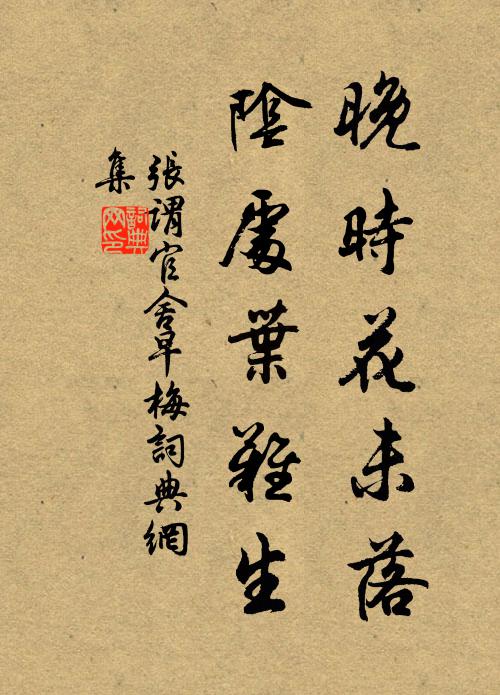 晚時花未落
陰處葉難生
張謂官舍早梅詞典網
集
詞典
网印